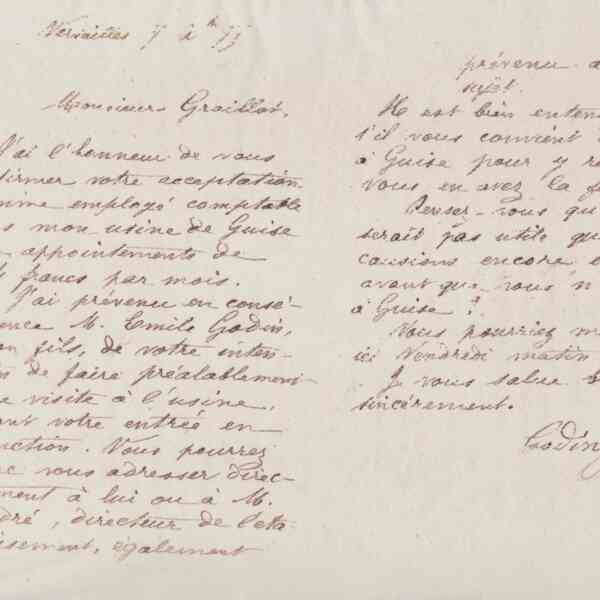 Versailles
Monsieur Graillot,
J'ai l'honneur de vous
firmer votre acceptation
mme employé comptable
s mon usine de Guise
appointements de
francs par mois.
J'ai prévenu en consé-
ence M. Emile Godin,
on fils, de votre inten-
n de faire préalablement
e visite à l'usine,
ant votre entrée en
nction. Vous pourrez
nc vous adresser direc-
ment à lui ou à M.
dré, directeur de l'éta
issement, également
prévenu à
sujet.
Il est bien enten
s'il vous convient
à Guise pour y re
vous en avez la f
Pensez-vous qu
serait pas utile qu
causions encore e
avant que vous n
à Guise ?
Vous pourriez m
ici Vendredi matin
Je vous salue b
sincèrement.
Godin